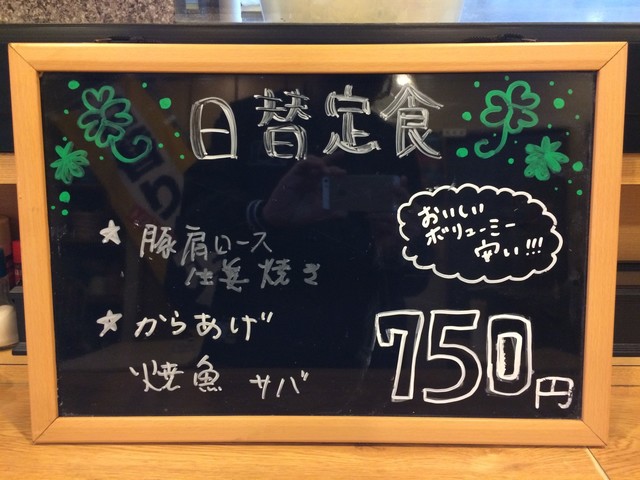 日替定食
おいしい
ボリューミー
安い!!!
★ 豚肩ロース
生姜焼き
★ からあげ
焼魚 サバ
750円